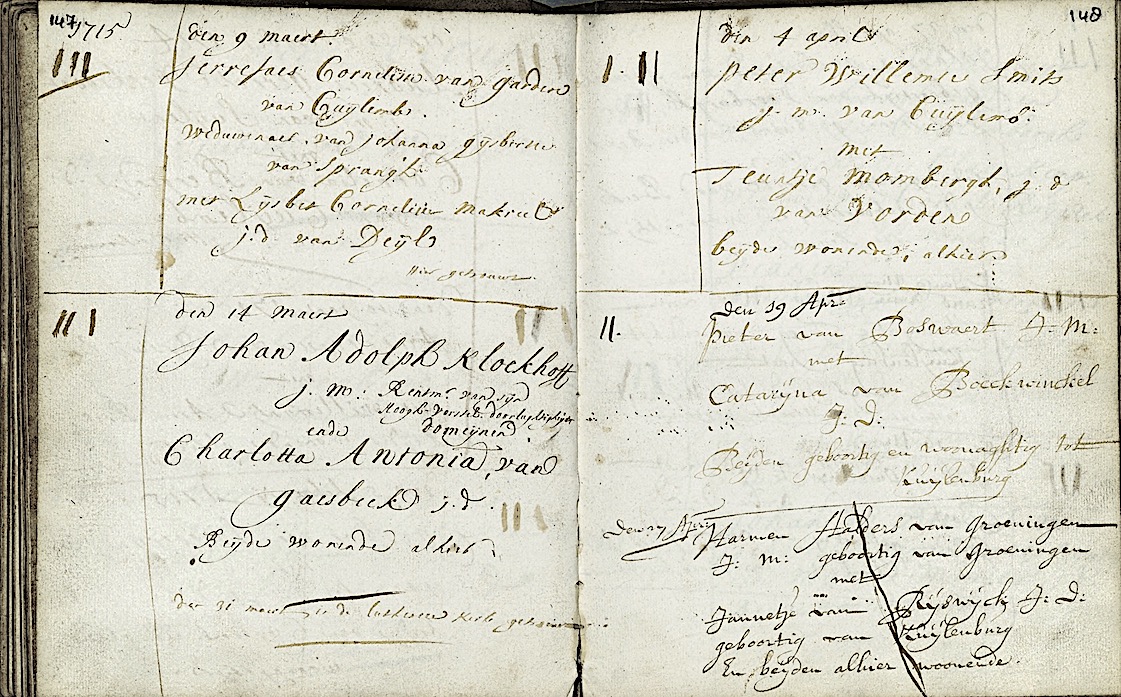 147
1715
den 9 maert.
III
Cornelisse van Garden
van Cuylemb.
weduwenaer van Johanna Gijsbertse
van Sprangh
met Lysbet Cornelisse Makreel
j.d van Deyl
hier getrouwt
den 14 Maert
III
Johan Adolph Klockhoff
j. m. Rentmr van syn
Hooghvorstel: doorluchtigheijts
ende domeynen
Charlotta Antonia van
Gaesbeeck j.d.
Beyde woonende alhier
den 31 maert in de luthersen kerk getrouwt
148
den 4 april
I. II
Peter Willemse Smits
j. m. van Cuylemb.
met
Teuntje Mombergh, j. d
van Vorden
beyde woonende alhier
den 19 Apr:
II.
Pieter van Boswaert J: M:
met
Catarijna van Boeckwinckel
J: D:
Beyden geboortig en woonaghtig tot
Kuijlenburg
den 27 Apr:
Harmen Halders van Groeningen
J: M: geboortig van Groeningen
met
Jannetje van Rijswijck J: D:
geboortig van Kuijlenburg
En beyden alhier woonende.